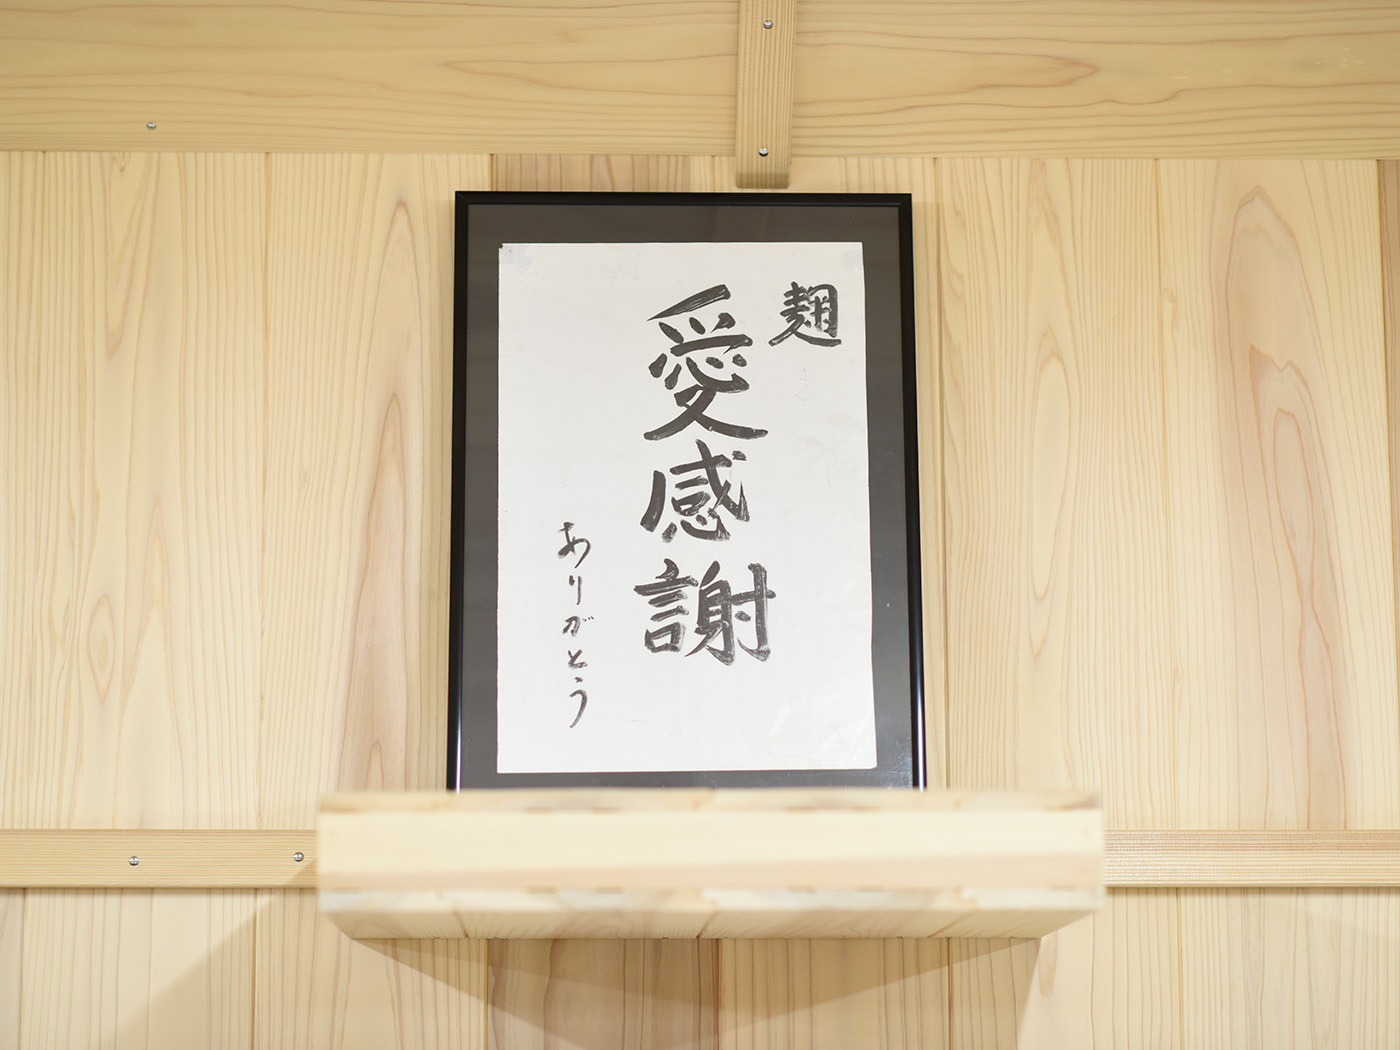 麹
愛感謝
ありがとう